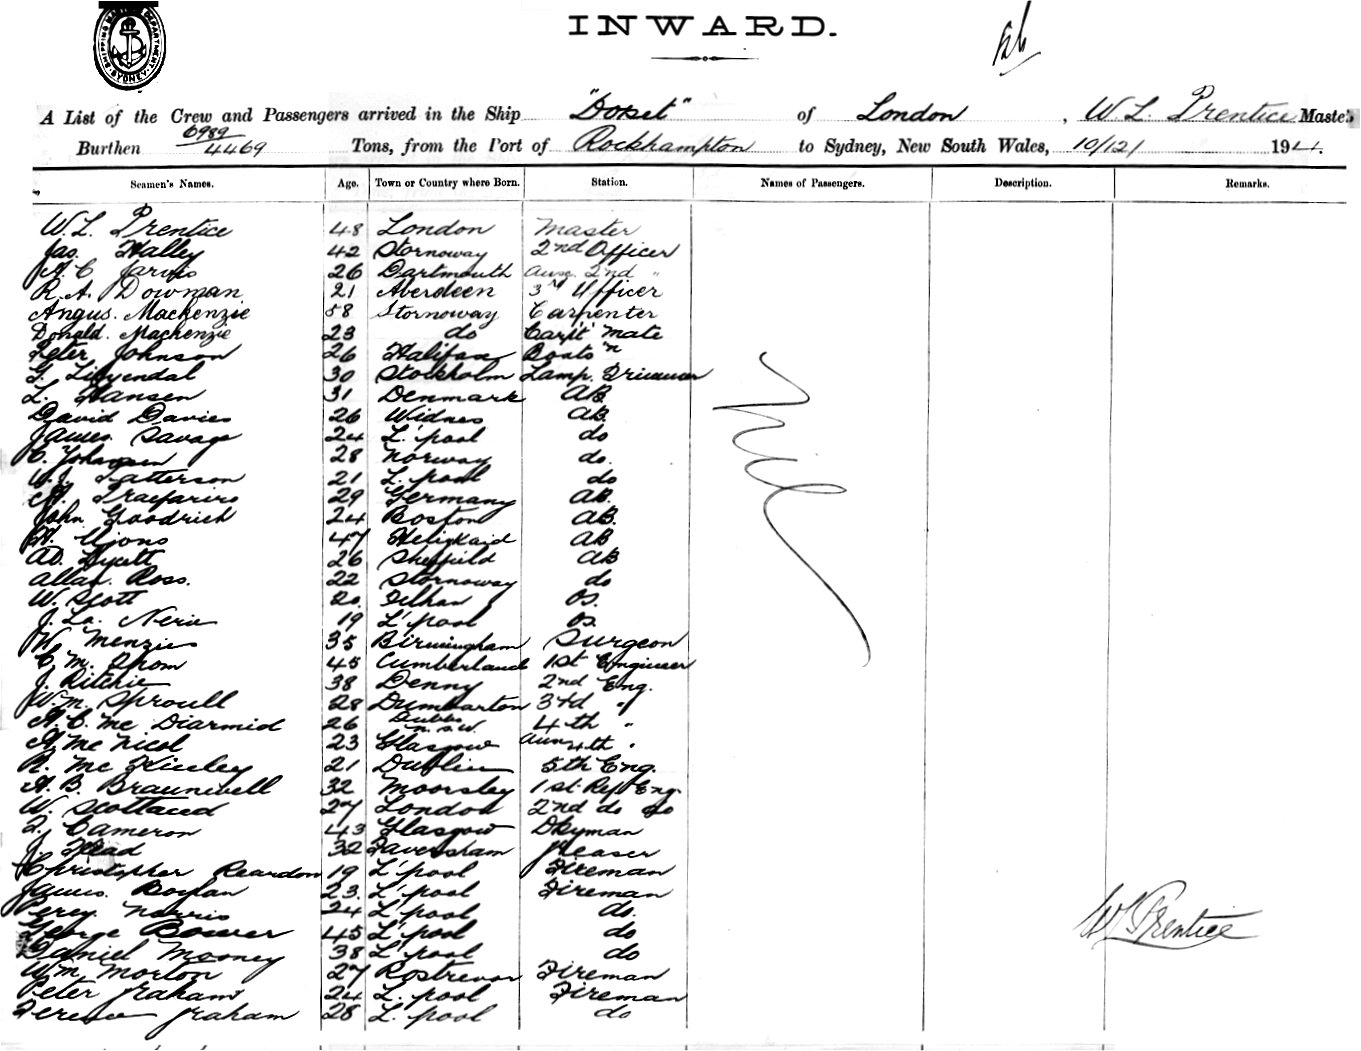 SHIPPING MASTER'S DEPARTMENT SYDNEY
INWARD.
A List of the Crew and Passengers arrived in the Ship "Dorset" of London, W. L. Prentice Master
Burthen 6989/4469 Tons, from the Port of Rockhampton to Sydney, New South Wales, 10/12/ 194.
Seamen's Names. Age. Town or Country where Born. Station. Names of Passengers. Description. Remarks.
W. L. Prentice 48 London Master
Jas. Halley 42 Stornoway 2nd Officer
A. C. Jarvis 26 Dartmouth Aux. 2nd "
R. A. Dowman 21 Aberdeen 3rd Officer
Angus. Mackenzie 58 Stornoway Carpenter
Donald. Mackenzie 23 do Carpt Mate
Peter Johnson 26 Halifax Boats'n
G. Liljendal 30 Stockholm Lamp. Trimmer
L. Hansen 31 Denmark AB
David Davies 26 Widnes AB.
James. Savage 24 L'pool do
C. Johansen 28 Norway do.
W. J. Patterson 21 L. pool do
29 Germany AB.
John Goodrich 24 Boston AB.
47 AB
Lycett 26 Sheffield AB
Allan. Ross. 22 Stornoway do
W. Scott 20. OS.
J. La. 19 L'pool OS.
W. Menzies 35 Birmingham Surgeon
C. M. 45 Cumberland 1st Engineer
J. Ritchie 38 Denny 2nd Eng.
Wm. Sproull 28 Dumbarton 3rd "
A. C. Mc Diarmid 26 Dubbo N.S.W. 4th "
A. Mc Nicol 23 Glasgow Aux 4th "
R. Mc 21 Dublin 5th Eng.
A. B. 32 Moorsley 1st. Ref Eng.
W. 27 London 2nd do do
Cameron 43 Glasgow Dkyman
J. Head 32 Faversham Greaser
Christopher Reardon 19 L'pool Fireman
James. Boylan 23. L'pool Fireman
Percy. Norris 24 L'pool do.
George Bower 45 L'pool do
Daniel Mooney 38 L'pool do
Wm. Morton 27 Rostrevor Fireman
Peter Graham 24 L. pool Fireman
Terence Graham 28 L. pool do
Nil
W L Prentice